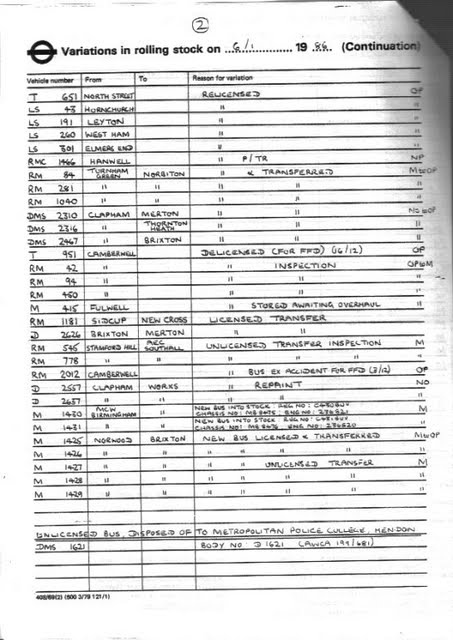 2
Variations in rolling stock on 6/1 1986 (Continuation)
Vehicle number From To Reason for variation
T 651 NORTH STREET RELICENSED OP
LS 43 HORNCHURCH "
LS 191 LEYTON "
LS 260 WEST HAM "
LS 301 ELMERS END "
RMC 1466 HANWELL " P/TR NP
RM 84 TURNHAM GREEN NORBITON " & TRANSFERRED
RM 281 " " " " "
RM 1040 " " " " "
DMS 2310 CLAPHAM MERTON " "
DMS 2316 " THORNTON HEATH " " "
DMS 2467 " BRIXTON " " "
T 951 CAMBERWELL DELICENSED (FOR FFD) (16/12) OP
RM 42 " " INSPECTION
RM 94 " " " "
RM 460 " " " "
M 415 FULWELL " STORED AWAITING OVERHAUL "
RM 1181 SIDCUP NEW CROSS LICENSED TRANSFER
D 2626 BRIXTON MERTON " "
RM 545 STAMFORD HILL AEC SOUTHALL UNLICENSED TRANSFER INSPECTION M
RM 778 " " " " " "
RM 2012 CAMBERWELL " BUS EX ACCIDENT FOR FFD (3/12) OP
D 2557 CLAPHAM WORKS " REPAINT NO
D 2637 " " " " "
M 1430 MCW BIRMINGHAM NEW BUS INTO STOCK REG NO: M
CHASSIS NO: ENG NO:
M 1431 " NEW BUS INTO STOCK REG NO: M
CHASSIS NO: ENG NO:
M 1425 NORWOOD BRIXTON NEW BUS LICENSED & TRANSFERRED
M 1426 " " " " " "
M 1427 " " " " UNLICENSED TRANSFER M
M 1428 " " " " " "
M 1429 " " " " " "
UNLICENSED BUS, DISPOSED OF TO METROPOLITAN POLICE COLLEGE, HENDON
DMS 1621 BODY NO: D 1621